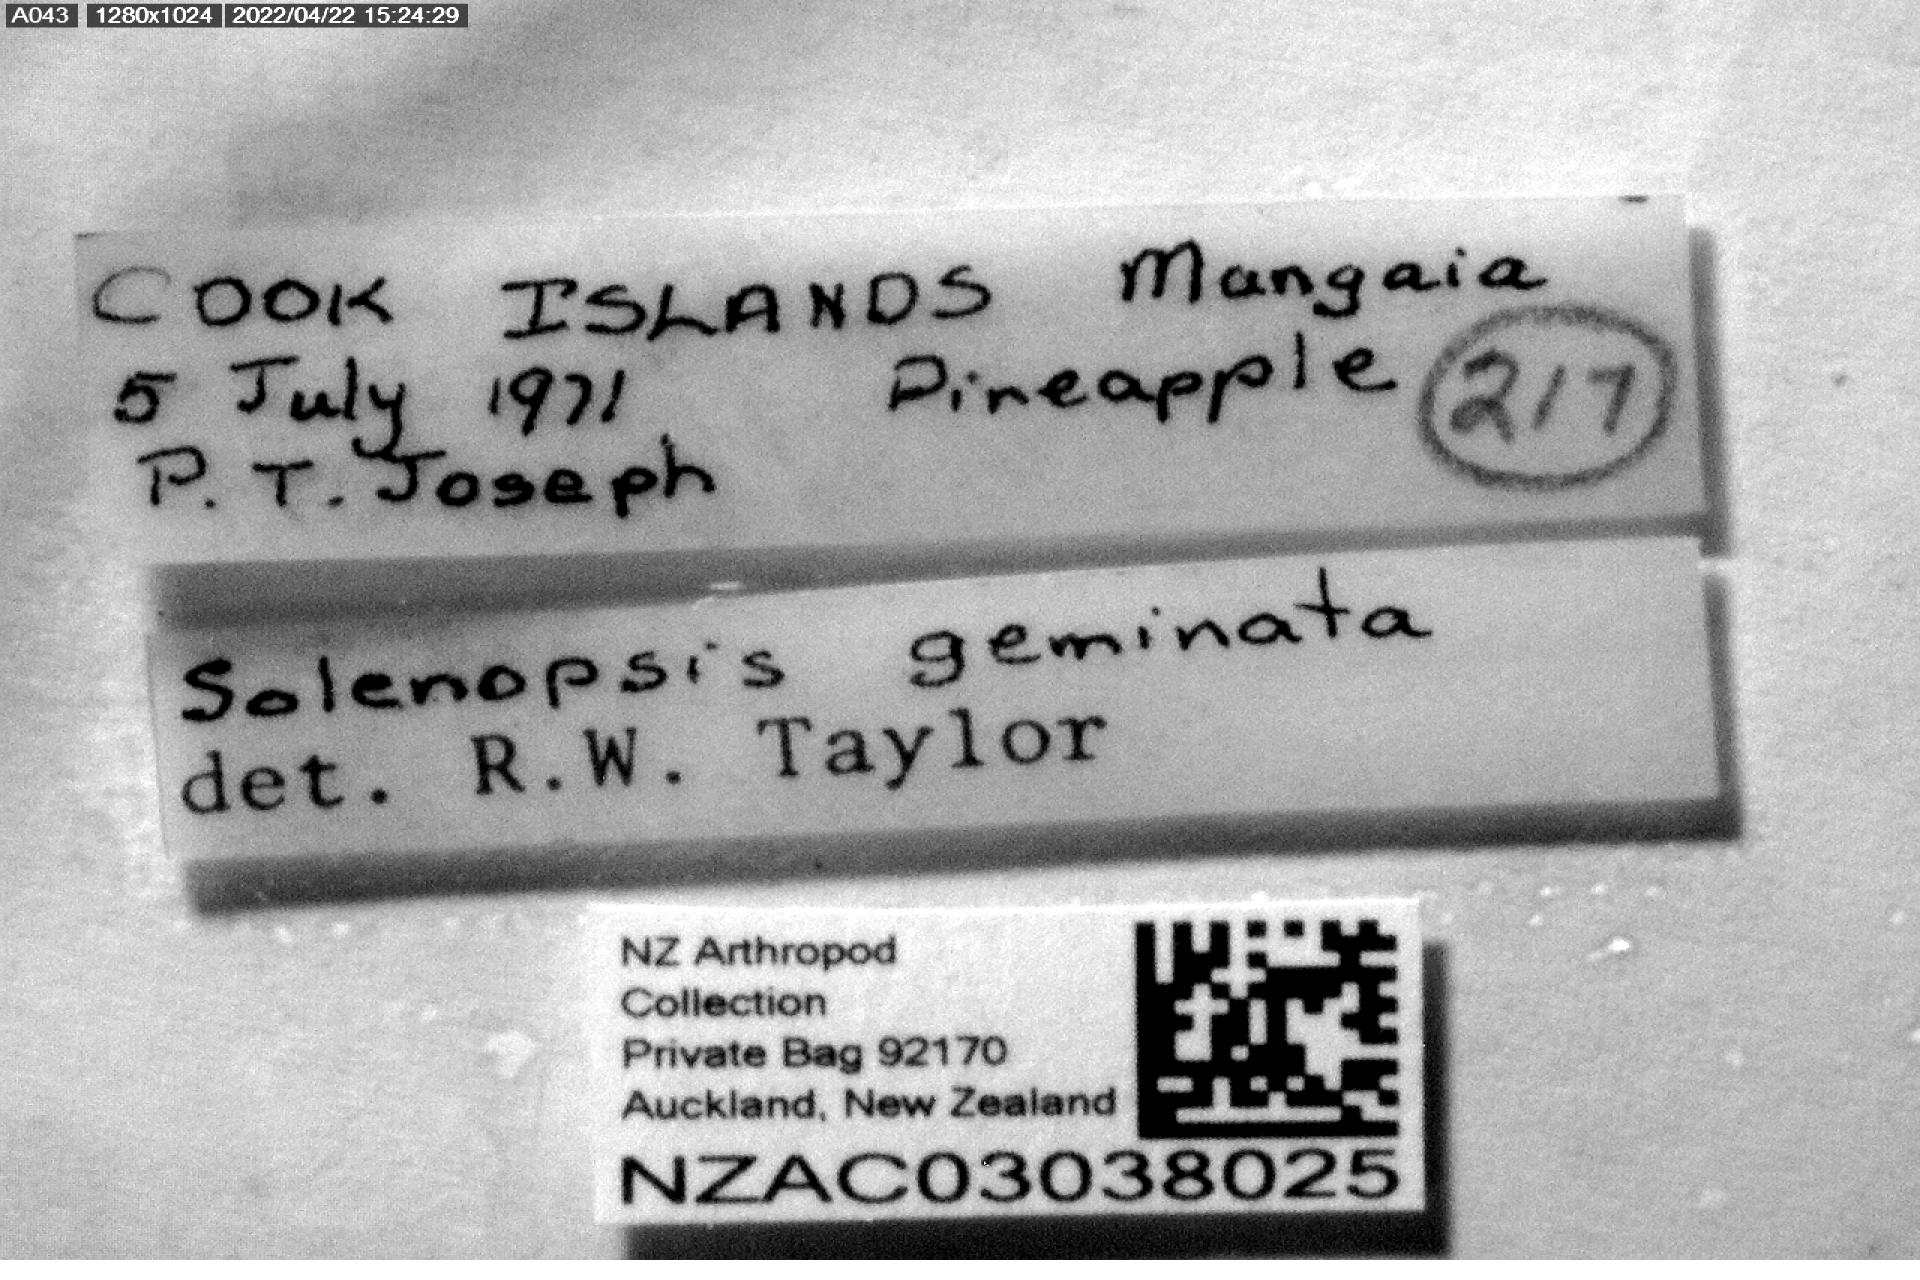 A043 1280x1024 2022/04/22 15:24:29
COOK ISLANDS Mangaia
5 July 1971 Pineapple 217
P. T. Joseph
Solenopsis geminata
det. R.W. Taylor
NZ Arthropod
Collection
Private Bag 92170
Auckland, New Zealand
NZAC03038025